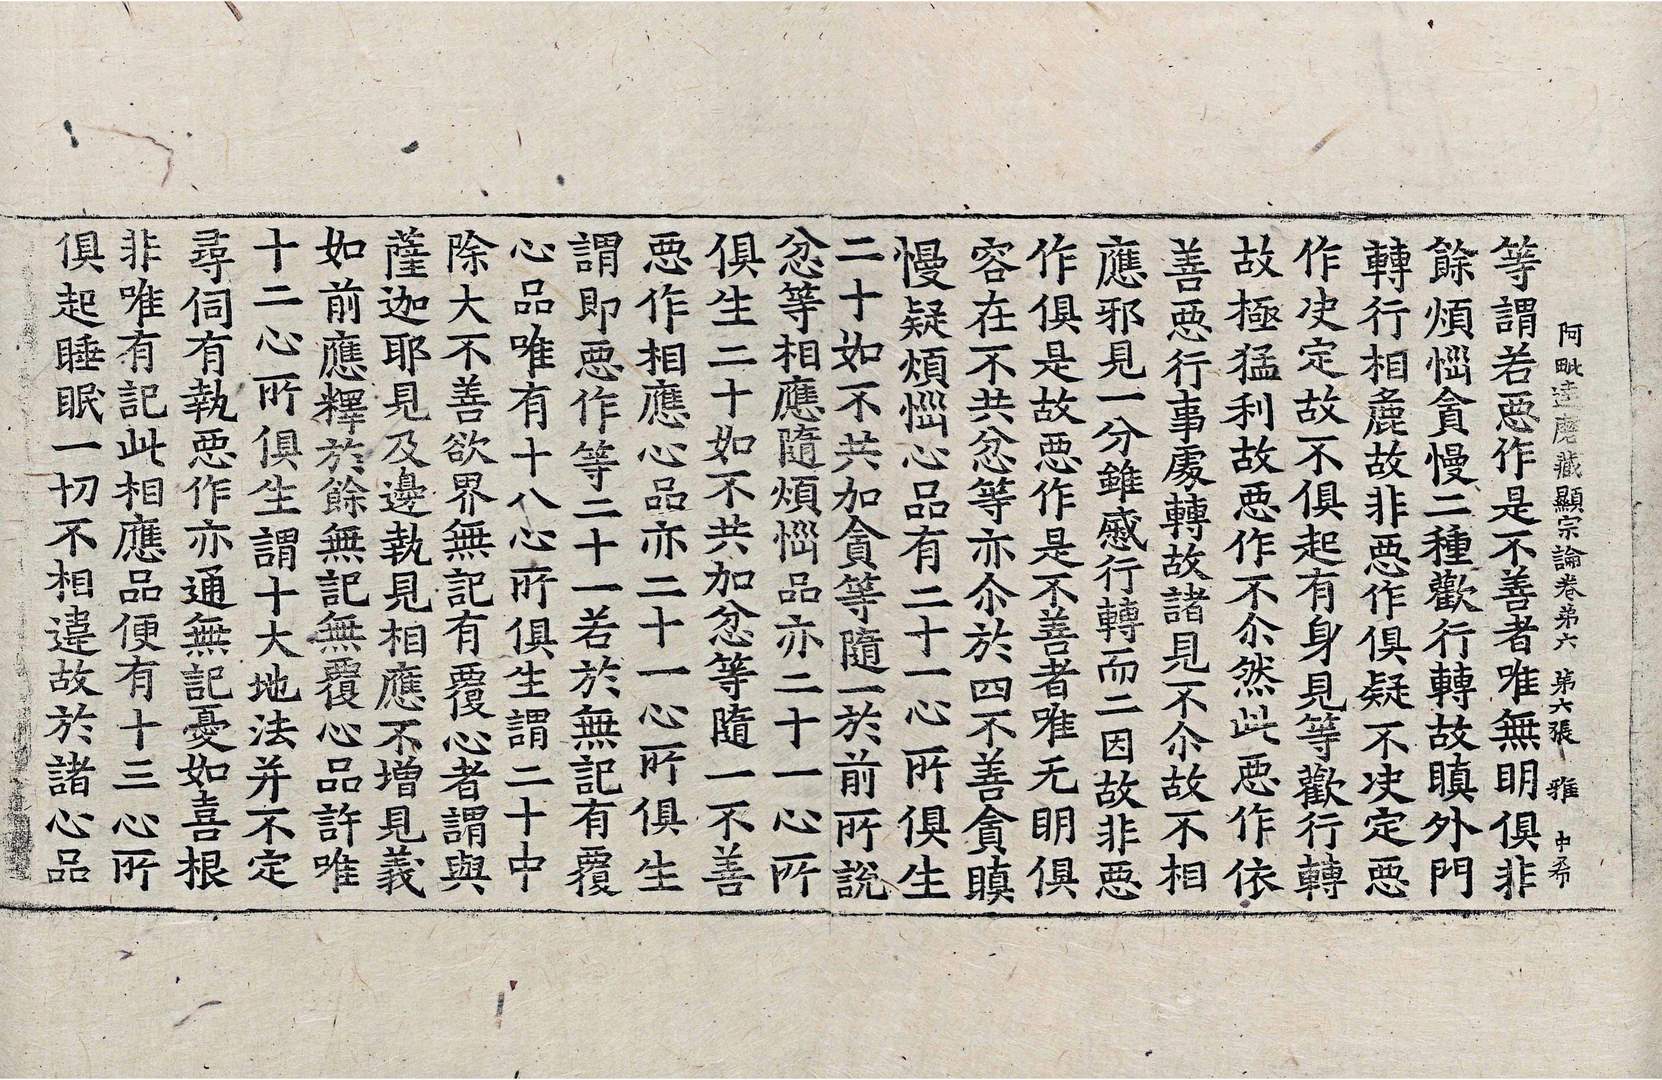 阿毗達磨藏顯宗論卷第六 第六張 雅 中希
等謂若惡作是不善者唯無明俱非
餘煩惱貪慢二種歡行轉故瞋外門
轉行相麁故非惡作俱疑不决定惡
作决定故不俱起有身見等歡行轉
故極猛利故惡作不尒然此惡作依
善惡行事處轉故諸見不尒故不相
應邪見一分雖慼行轉而二因故非惡
作俱是故惡作是不善者唯无明俱
容在不共忿等亦尒於四不善貪瞋
慢疑煩惱心品有二十一心所俱生
二十如不共加貪等隨一於前所說
忿等相應隨煩惱品亦二十一心所
俱生二十如不共加忿等隨一不善
惡作相應心品亦二十一心所俱生
謂即惡作等二十一若於無記有覆
心品唯有十八心所俱生謂二十中
除大不善欲界無記有覆心者謂與
薩迦耶見及邊執見相應不增見義
如前應釋於餘無記無覆心品許唯
十二心所俱生謂十大地法并不定
尋伺有執惡作亦通無記憂如喜根
非唯有記此相應品便有十三心所
俱起睡眠一切不相違故於諸心品